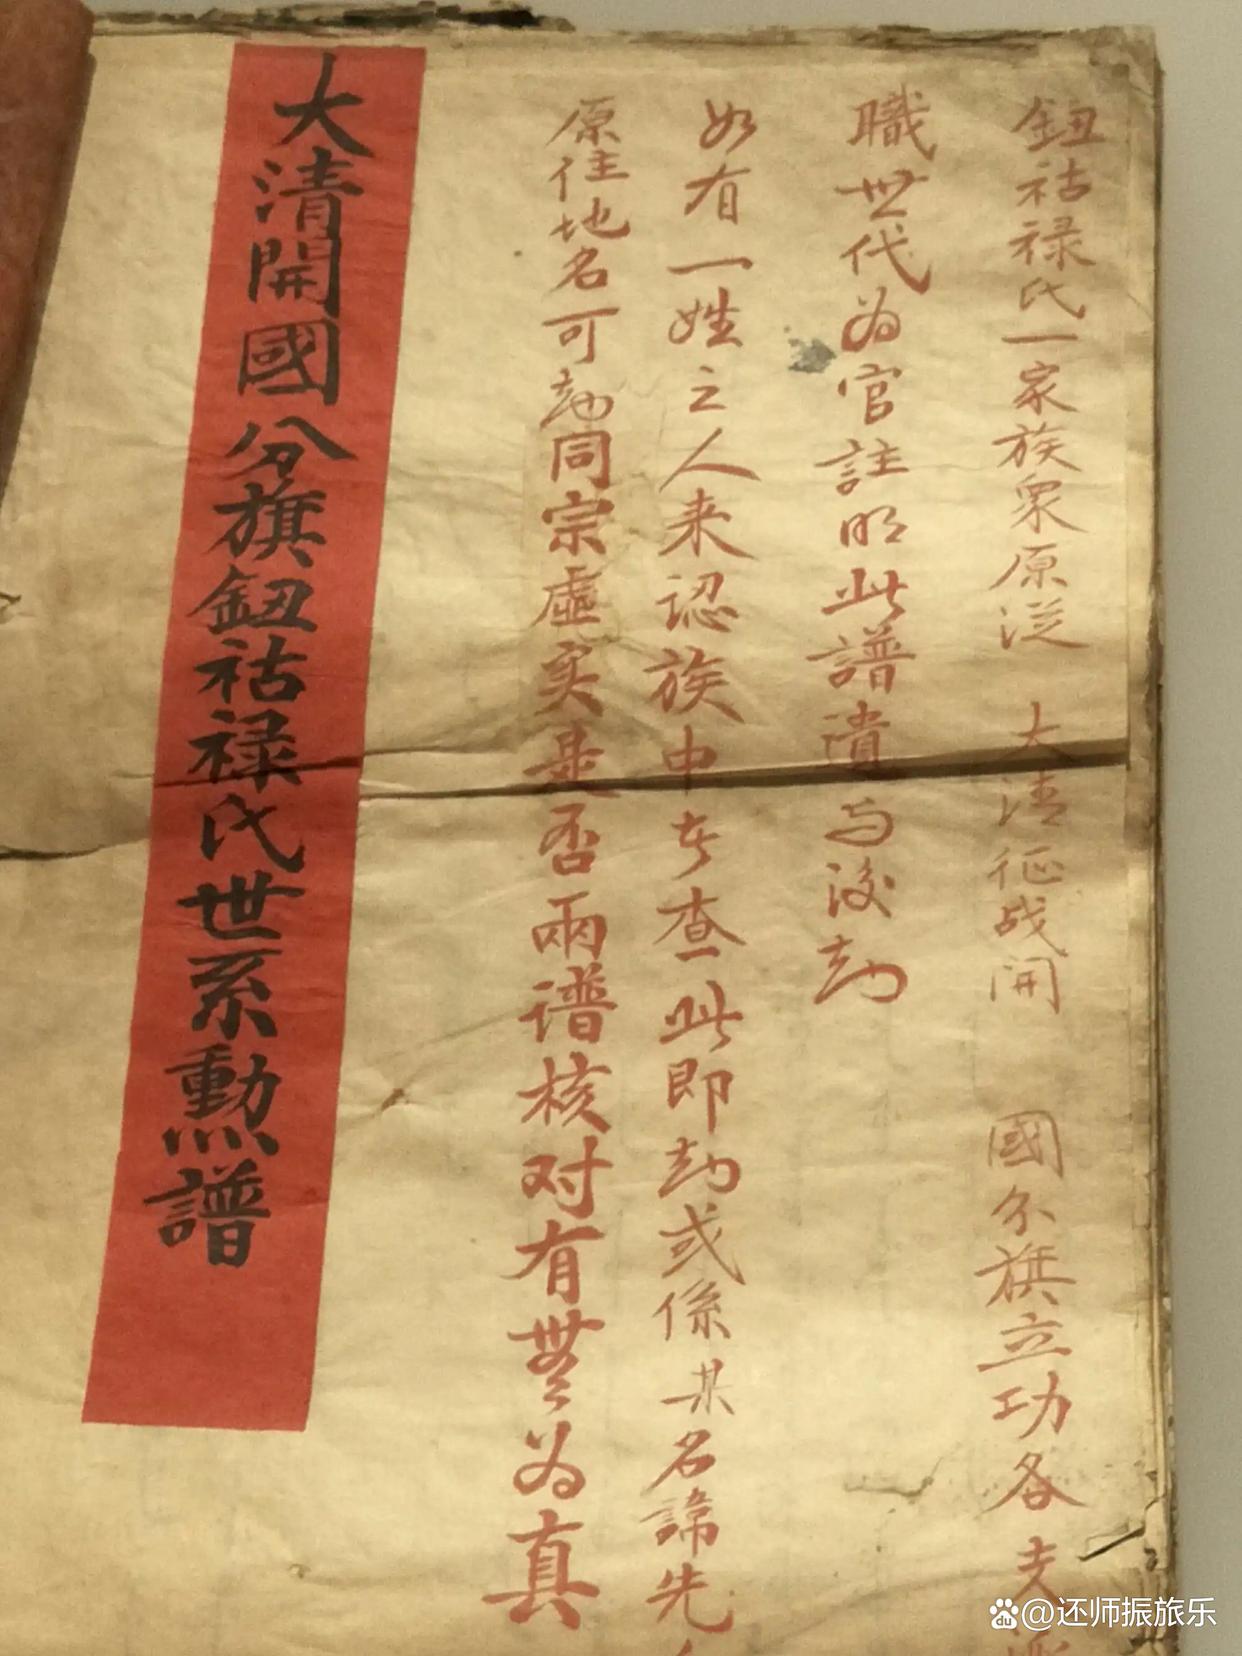 鈕祜禄氏一家族衆原從 大清征战開 國分旗立功各支
職世代为官註明此譜遺与後
如有一姓之人来認族中者查此即知或係某名諱先
原住地名可知同宗虛实是否兩谱核对有無为真
大清開國分旗鈕祜禄氏世系勳譜
@还师振旅乐